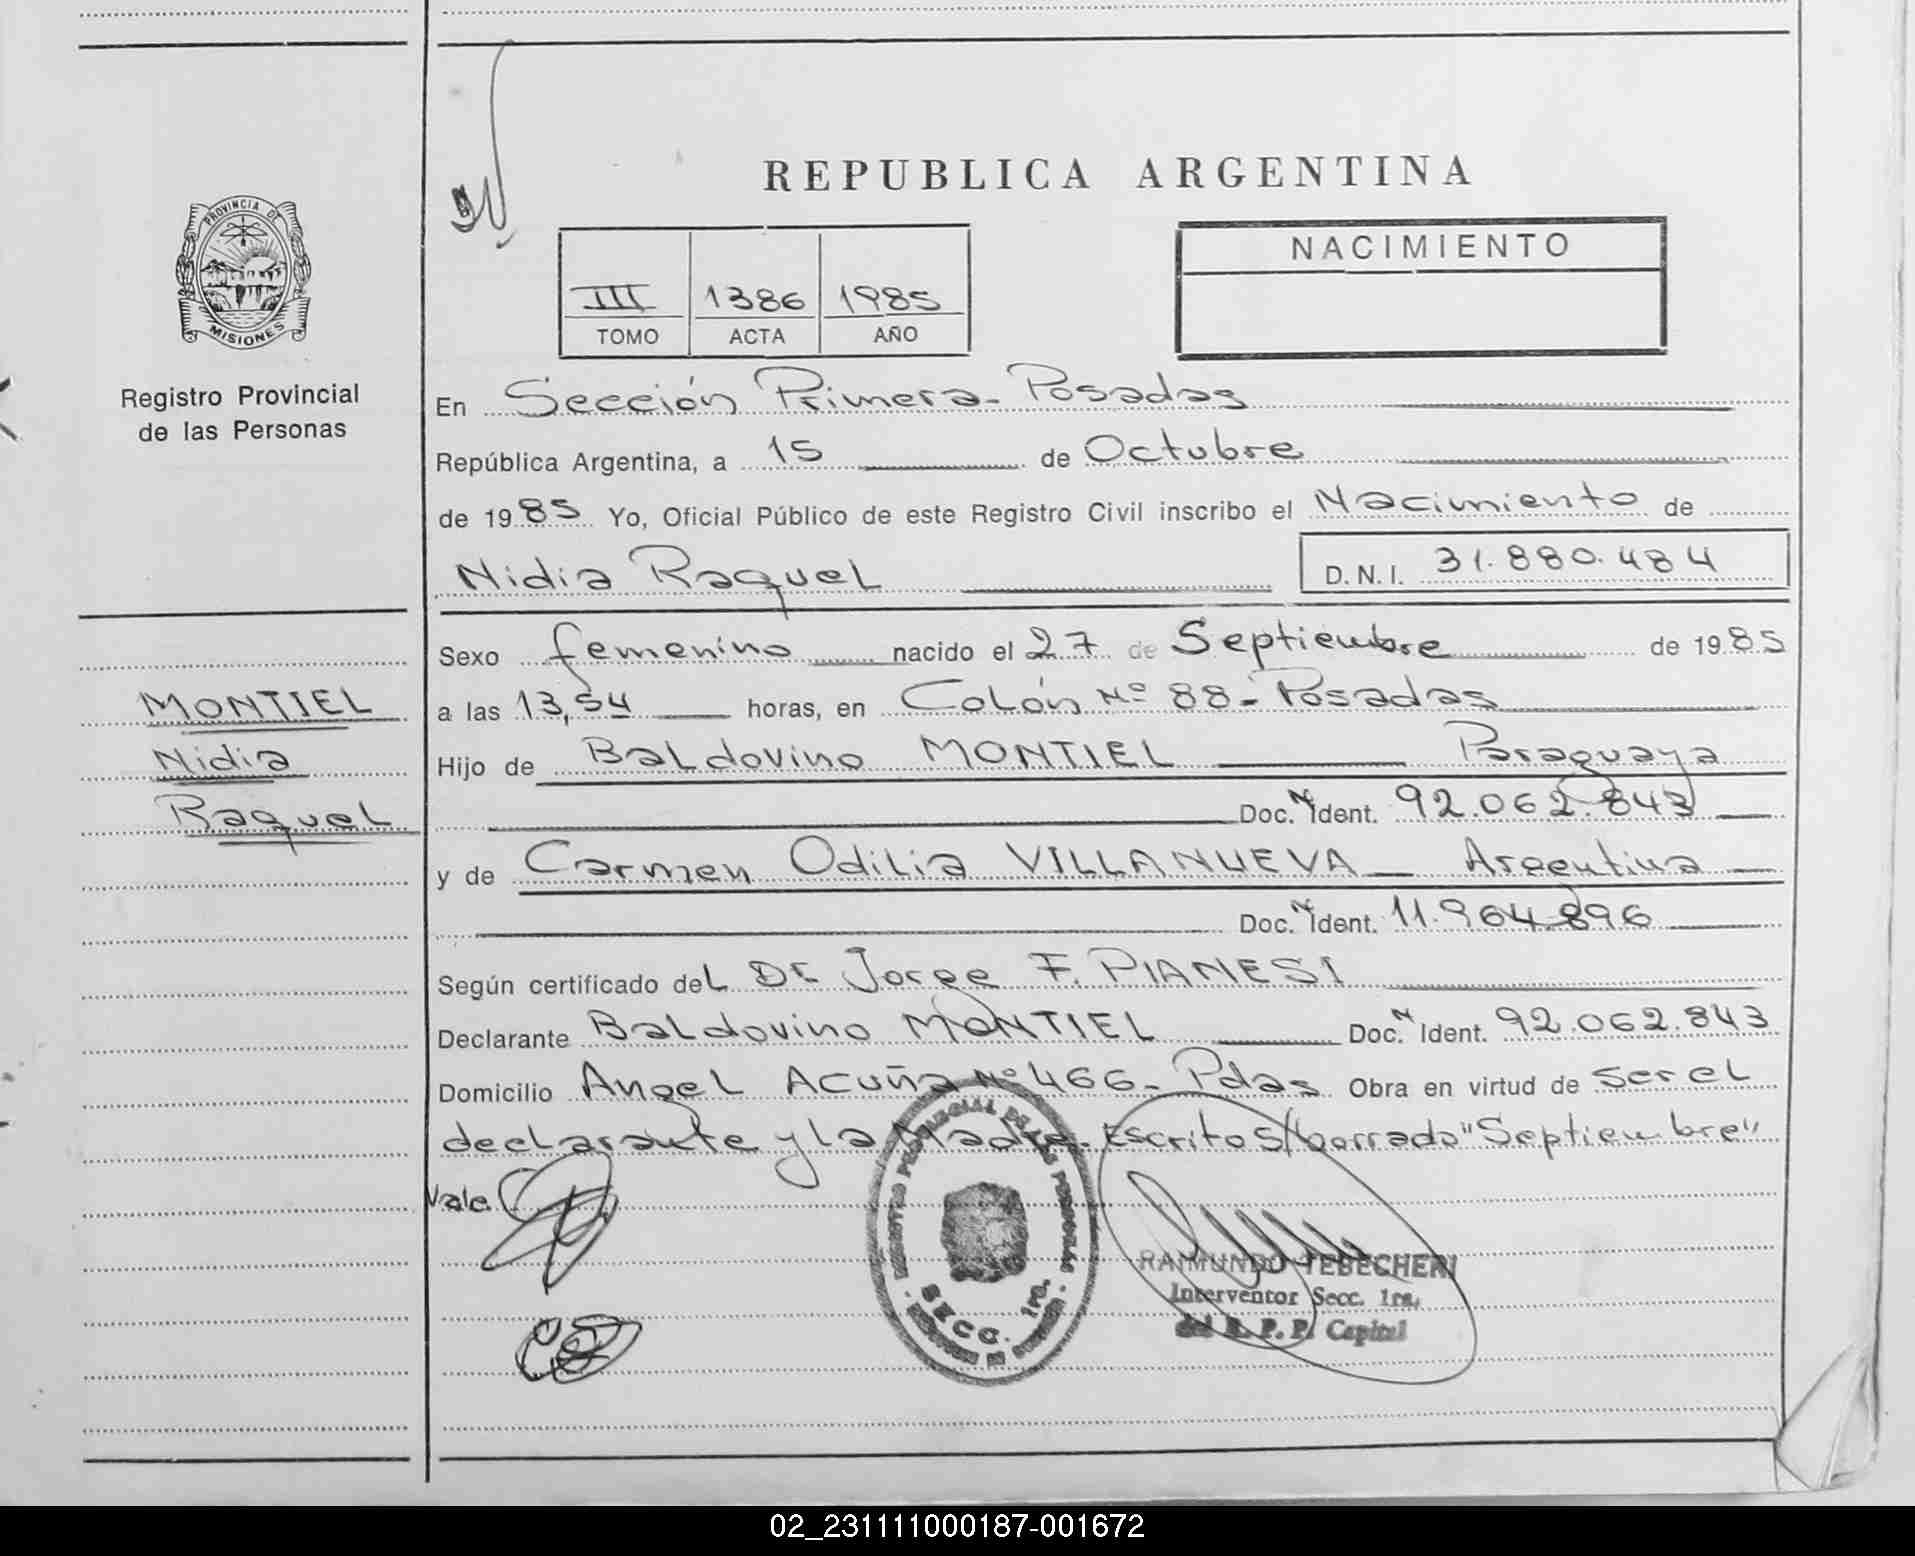 REPUBLICA ARGENTINA
PROVINCIA DE
MISIONES
Registro Provincial
de las Personas
III 1386 1985
TOMO ACTA AÑO
NACIMIENTO
En Sección Primera - Posadas
República Argentina, a 15 de Octubre
de 1985 Yo, Oficial Público de este Registro Civil inscribo el Nacimiento de
Nidia Raquel D. N. I. 31.880.484
Sexo femenino nacido el 27 de Septiembre de 1985
a las 13,54 horas, en Colón Nº 88 - Posadas
Hijo de Baldovino MONTIEL Paraguaya
Doc. N Ident. 92.062.843
y de Carmen Odilia VILLANUEVA Argentina
Doc. N Ident. 11.964.896
Según certificado del Dr Jorge F. PIANESI
Declarante Baldovino MONTIEL Doc. N Ident. 92.062.843
Domicilio Angel Acuña Nº 466 - Pdas Obra en virtud de ser el
declarante y la Madre - Escrito S/borrado "Septiembre"
Vale
MONTIEL
Nidia
Raquel
REGISTRO PROVINCIAL DE LAS PERSONAS
SECC. 1ra.
RAIMUNDO TEBECHERI
Interventor Secc. 1ra.
del R. P. P. Capital
02_231111000187-001672